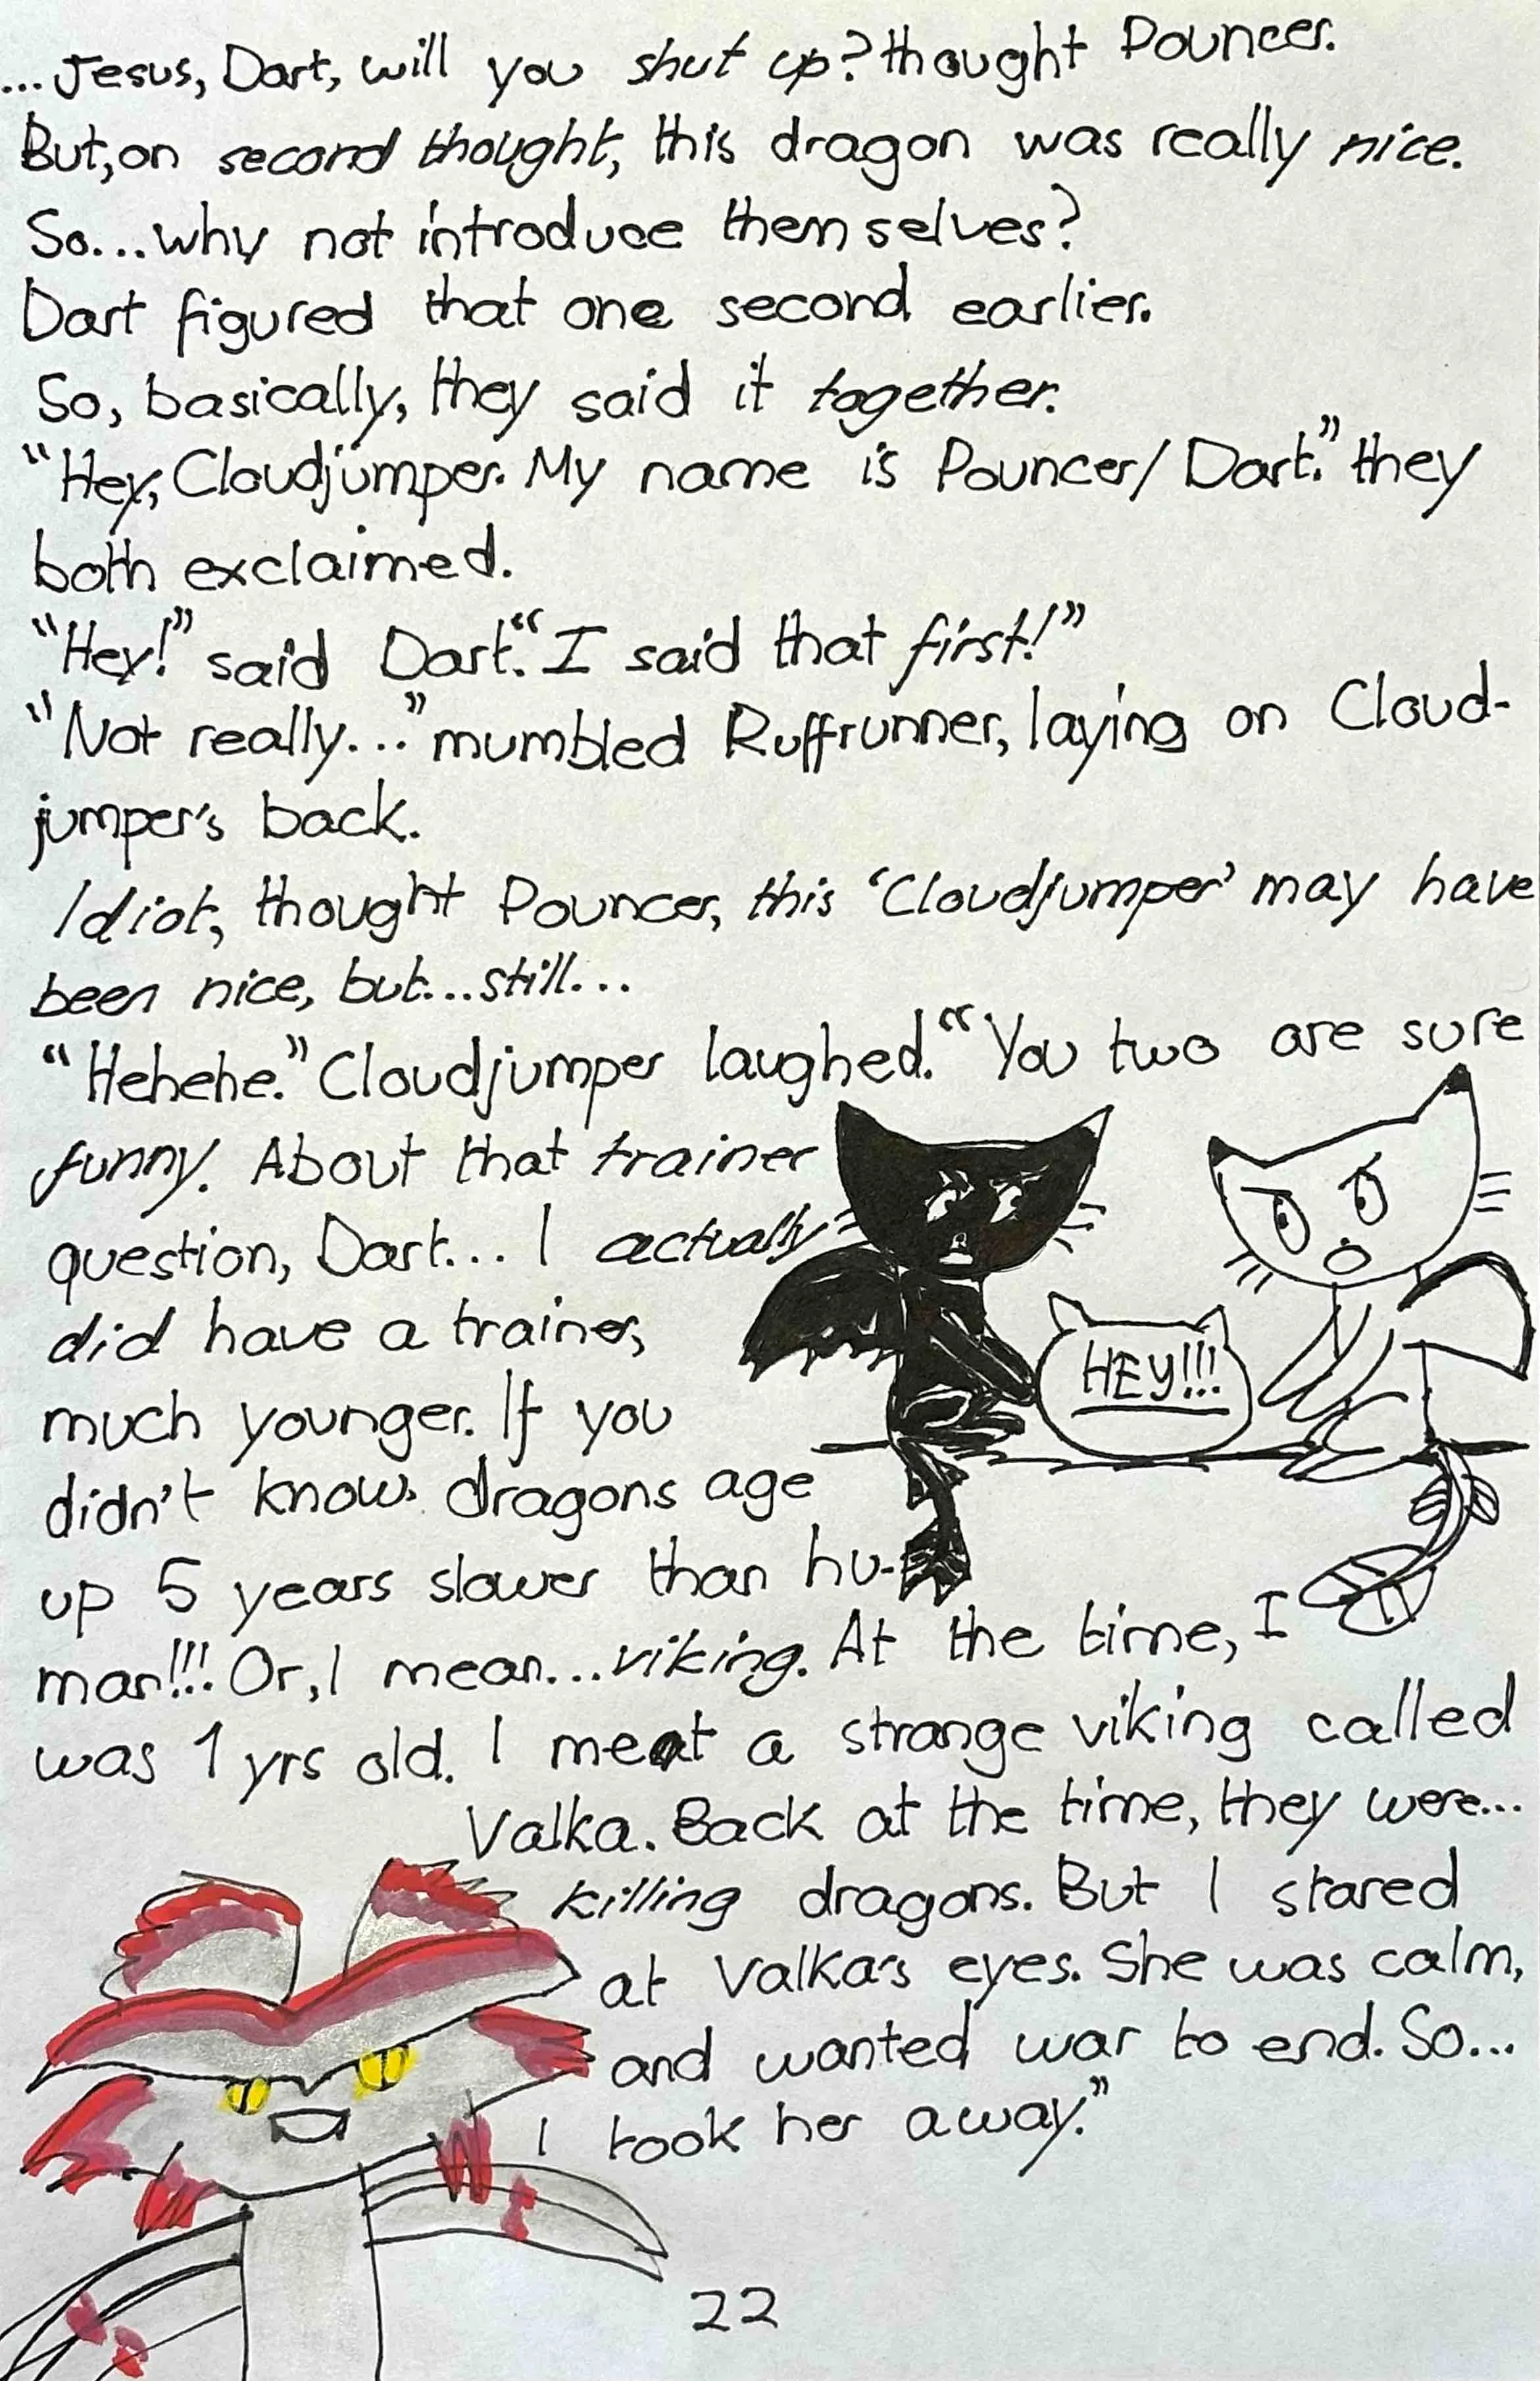 ...Jesus, Dart, will you shut up? thought Pouncer.
But, on second thought, this dragon was really nice.
So...why not introduce themselves?
Dart figured that one second earlier.
So, basically, they said it together.
"Hey, Cloudjumper. My name is Pouncer/Dart." they
both exclaimed.
"Hey!" said Dart. "I said that first!"
"Not really..." mumbled Ruffrunner, laying on Cloud-
jumper's back.
Idiot, thought Pouncer, this 'Cloudjumper' may have
been nice, but...still...
"Hehehe." Cloudjumper laughed. "You two are sure
funny. About that trainer
question, Dart... I actually
did have a trainer,
much younger. If you
didn't know, dragons age
up 5 years slower than hu-
man!!! Or, I mean...viking. At the time, I
was 1 yrs old. I meat a strange viking called
Valka. Back at the time, they were...
killing dragons. But I stared
at Valka's eyes. She was calm,
and wanted war to end. So...
I took her away."
HEY!!!
22